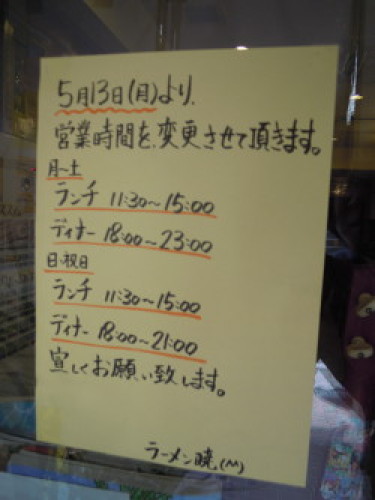 5月13日(月)より、
営業時間を、変更させて頂きます。
月〜土
ランチ 11:30〜15:00
ディナー 18:00〜23:00
日・祝日
ランチ 11:30〜15:00
ディナー 18:00〜21:00
宜しくお願い致します。
ラーメン暁